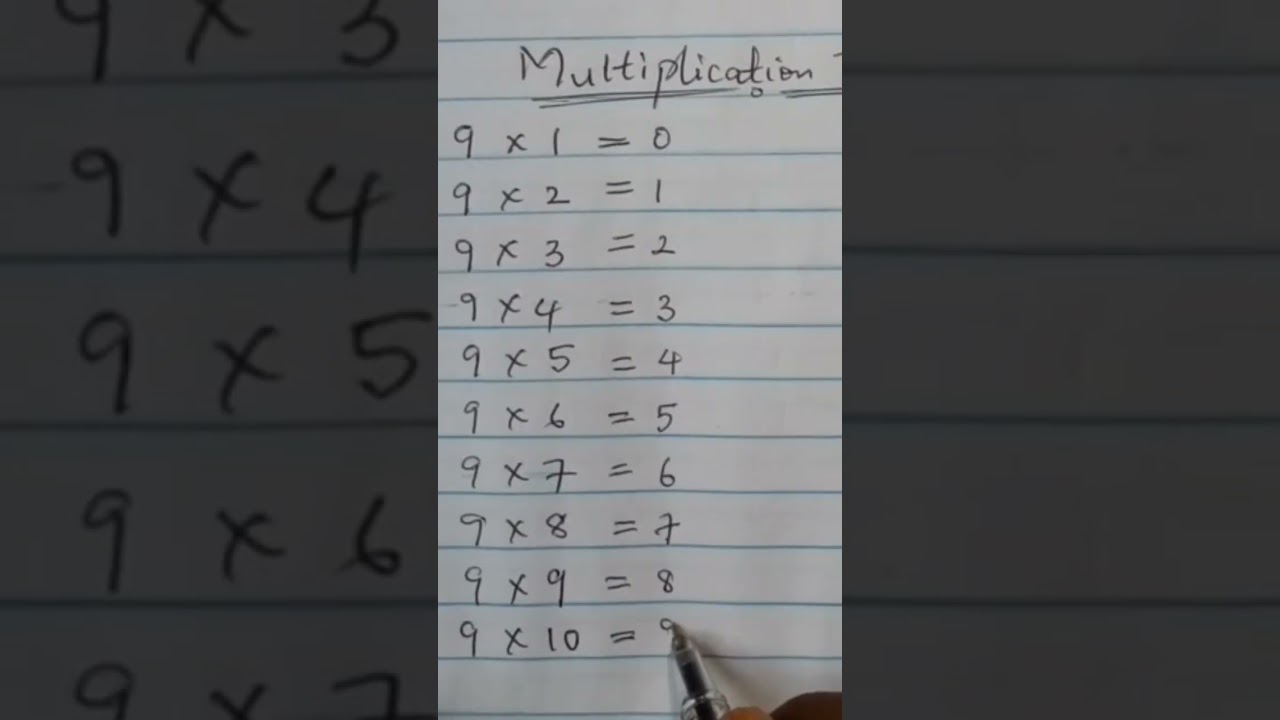 Multiplication
9 × 1 = 0
9 × 2 = 1
9 × 3 = 2
9 × 4 = 3
9 × 5 = 4
9 × 6 = 5
9 × 7 = 6
9 × 8 = 7
9 × 9 = 8
9 × 10 = 9